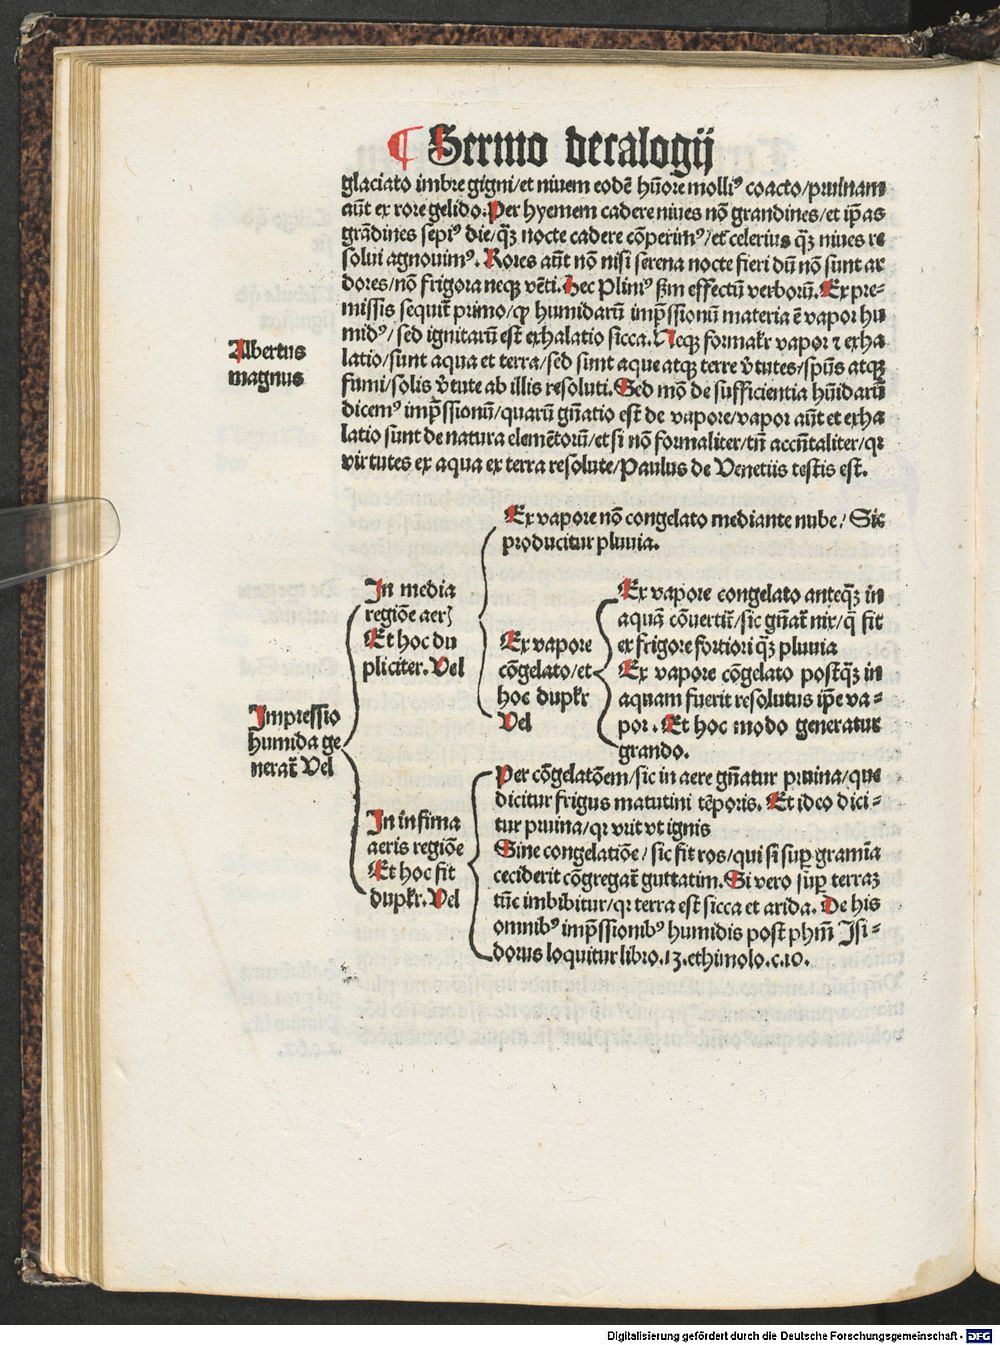 ¶ Sermo decalogij
glaciato imbre gigni/et niuem eodē hūore molliꝰ coacto/pruinam
aūt ex rore gelido. Per hyemem cadere niues nō grandines/et ip̄as
grādines sepiꝰ die/q̄ꝫ nocte cadere cōperimꝰ/et celerius q̄ꝫ niues re
solui agnouimꝰ. Rores aūt nō nisi serena nocte fieri dū nō sunt ar
dores/nō frigora neqꝫ vēti. Hec Pliniꝰ ẜm effectū verborū. Ex pre⸗
missis sequit̄ primo/ꝙ humidarū imp̄ssionū materia ē vapor hu
midꝰ/sed ignitarū est exhalatio sicca. Neqꝫ formalr̄ vapor ⁊ exha
latio/sunt aqua et terra/sed sunt aque atqꝫ terre v̄tutes/sp̄us atqꝫ
fumi/solis v̄tute ab illis resoluti. Sed mō de sufficientia hūidarū
dicemꝰ imp̄ssionū/quarū gn̄atio est de vapore/vapor aūt et exha
latio sunt de natura elemētorū/et si nō formaliter/tn̄ accn̄taliter/qꝛ
virtutes ex aqua ex terra resolute/Paulus de Venetiis testis est.
Albertus
magnus
Impressio
humida ge
nerat̄ Vel
In media
regiōe aerꝭ
Et hoc du
pliciter. Vel
Ex vapore nō congelato mediante nube/ Sic
producitur pluuia.
Ex vapore
cōgelato/et
hoc duplr̄
Vel
Ex vapore congelato anteq̄ꝫ in
aquā cōuertit̄/sic gn̄at̄ nix/q̄ fit
ex frigore fortiori q̄ꝫ pluuia
Ex vapore cōgelato postq̄ꝫ in
aquam fuerit resolutus ip̄e va⸗
por. Et hoc modo generatur
grando.
In infima
aeris regiōe
Et hoc fit
duplr̄. Vel
Per cōgelatōem/sic in aere gn̄atur pruina/que
dicitur frigus matutini tēporis. Et ideo dici⸗
tur pruina/qꝛ vrit vt ignis
Sine congelatiōe/sic fit ros/qui si suꝑ gramīa
ceciderit cōgregat̄ guttatim. Si vero suꝑ terraꝫ
tūc imbibitur/qꝛ terra est sicca et arida. De his
omnibꝰ imp̄ssionibꝰ humidis post ph̄m Isi⸗
dorus loquitur libro.13.ethimolo.c.10.
Digitalisierung gefördert durch die Deutsche Forschungsgemeinschaft - DFG